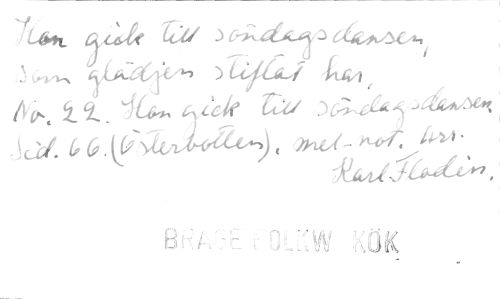 Hon gick till söndagsdansen,
som glädjen stiftat har,
No. 22. Hon gick till söndagsdansen.
Sid. 66. (Österbotten). mel-not. Arr.
Karl Flodin.
BRAGE FOLKW KÖK